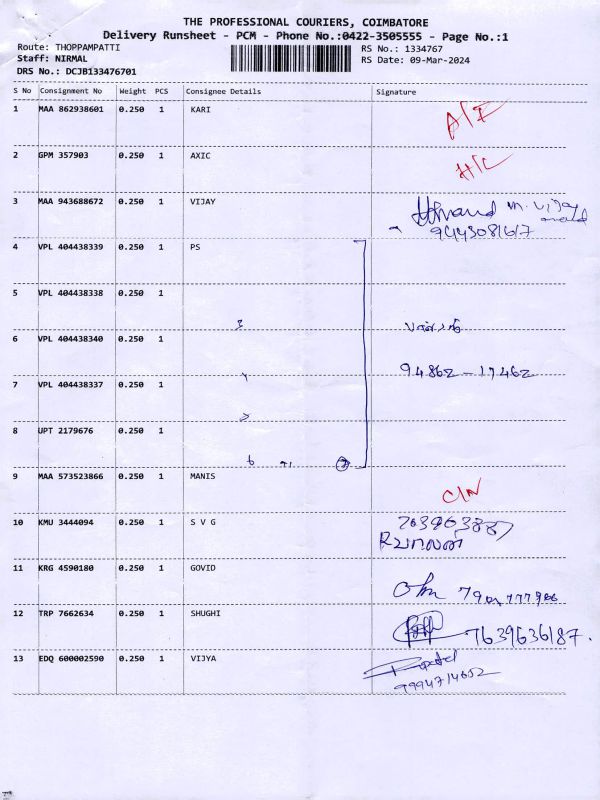 THE PROFESSIONAL COURIERS, COIMBATORE
Delivery Runsheet - PCM - Phone No.:0422-3505555 - Page No.:1
Route: THOPPAMPATTI RS No.: 1334767
Staff: NIRMAL RS Date: 09-Mar-2024
DRS No.: DCJB133476701
S No Consignment No Weight PCS Consignee Details Signature
1 MAA 862938601 0.250 1 KARI
2 GPM 357903 0.250 1 AXIC H/C
3 MAA 943688672 0.250 1 VIJAY M. Vijay
anand
9443081617
4 VPL 404438339 0.250 1 PS
5 VPL 404438338 0.250 1
6 VPL 404438340 0.250 1
94862-17462
7 VPL 404438337 0.250 1
8 UPT 2179676 0.250 1
9 MAA 573523866 0.250 1 MANIS
10 KMU 3444094 0.250 1 S V G
11 KRG 4590180 0.250 1 GOVID
12 TRP 7662634 0.250 1 SHUGHI 7639636187.
13 EDQ 600002590 0.250 1 VIJYA
9994714652